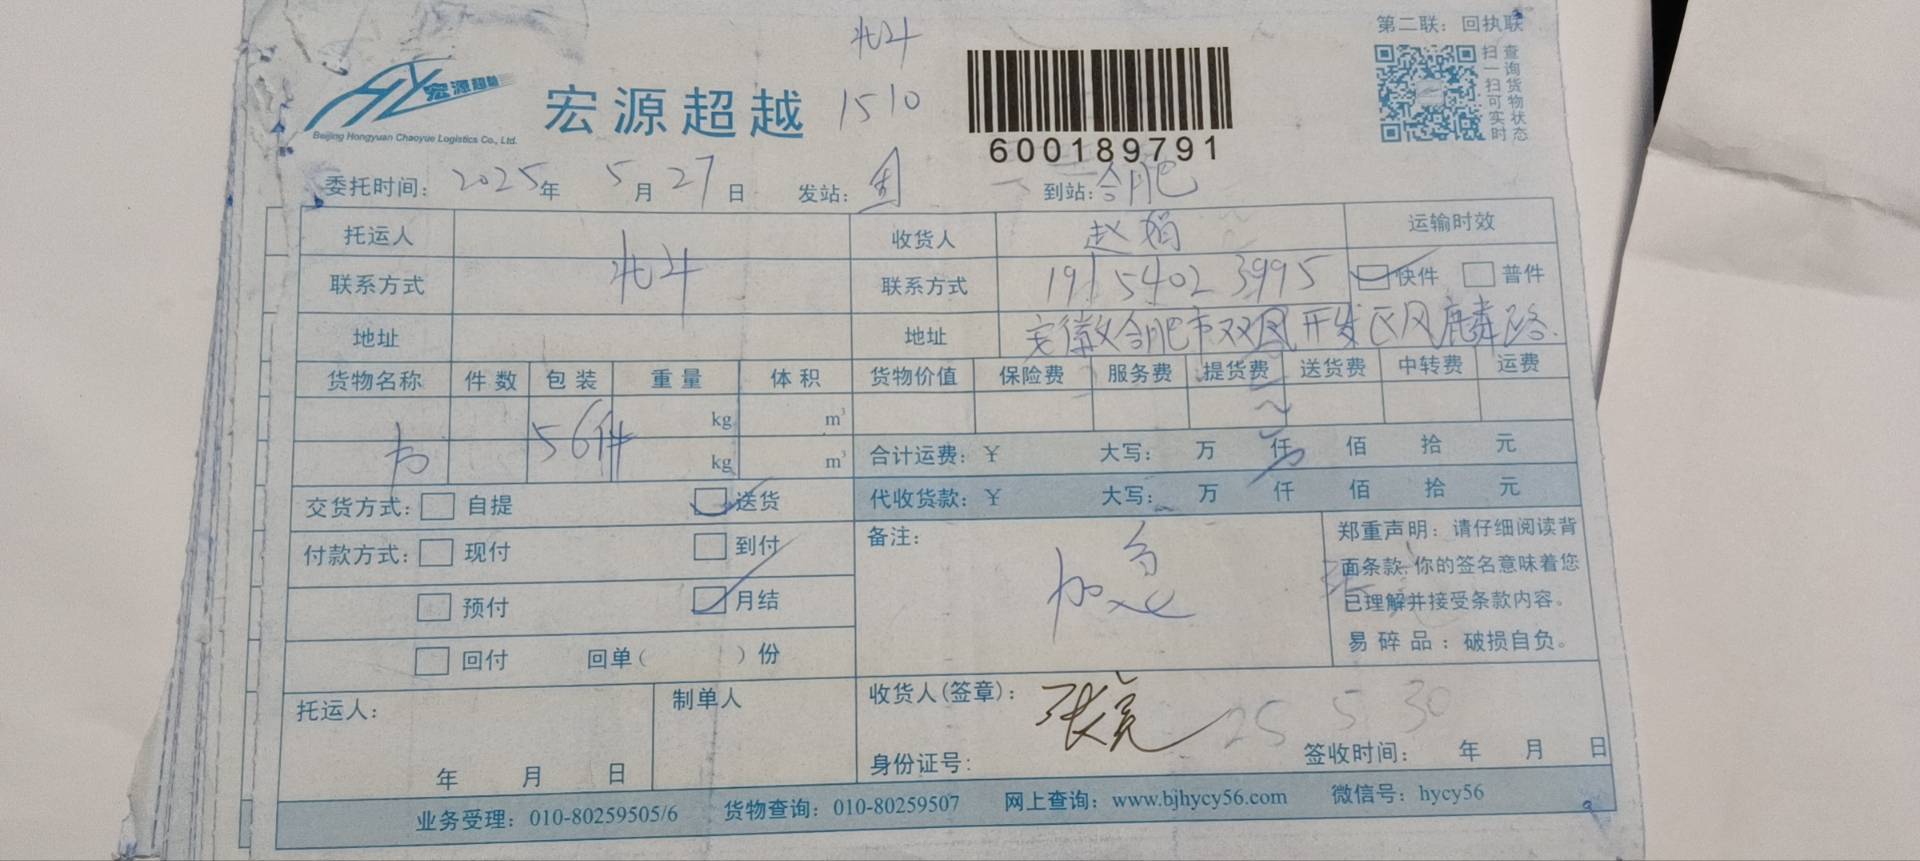 第二联：回执联
北斗
宏源超越
Beijing Hongyuan Chaoyue Logistics Co., Ltd.
宏源超越
1510
600189791
扫一扫可实时
查询货物状态
委托时间：2025年 5月27日 发站： 到站：合肥
托运人 北斗 收货人 赵娟 运输时效
联系方式 联系方式 19154023995 快件 普件
地址 地址 安徽合肥市双凤开发区凤麟路
货物名称 件数 包装 重量 体积 货物价值 保险费 服务费 提货费 送货费 中转费 运费
kg m³
书 56件 kg m³ 合计运费：￥ 大写： 万 仟 佰 拾 元
交货方式： 自提 送货 代收货款：￥ 大写： 万 仟 佰 拾 元
付款方式： 现付 到付
预付 月结
回付 回单( )份
备注：
加急
郑重声明：请仔细阅读背
面条款,你的签名意味着您
已理解并接受条款内容。
易碎品：破损自负。
托运人：
年 月 日
制单人
收货人(签章)： 张亮 25 5 30
身份证号： 签收时间： 年 月 日
业务受理：010-80259505/6 货物查询：010-80259507 网上查询：www.bjhycy56.com 微信号：hycy56